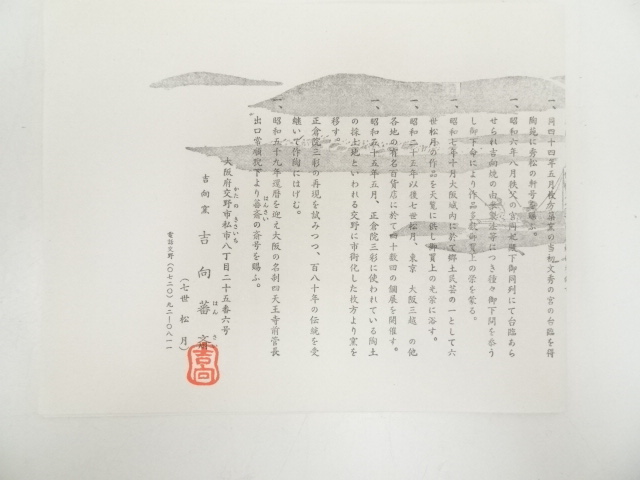 一、同四十四年五月枚方築窯の当初文秀の宮の台臨を得
陶苑に秀松の軒号を賜ふ。
一、昭和六年八月秩父の宮両妃殿下御同列にて台臨あら
せられ吉向焼の由来製法等につき種々御下問を忝う
し御下命により作品多数御買上の栄を蒙る。
一、昭和七年十月大阪城内に於て郷土民芸の一として六
世松月の作品を天覧に供し御買上の光栄に浴す。
一、昭和二十五年以後七世松月、東京 大阪三越 の他
各地の有名百貨店に於て四十数回の個展を開催す。
一、昭和五十五年五月、正倉院三彩に使われている陶土
の採土地といわれる交野に市街化した枚方より窯を
移す。
正倉院三彩の再現を試みつつ、百八十年の伝統を受
継いで作陶にはげむ。
一、昭和五十九年還暦を迎え大阪の名刹四天王寺前管長
出口常順猊下より蕃斎の斎号を賜ふ。
大阪府交野市私市八丁目二十五番六号
かたの きさいち
吉向窯 吉向蕃斎
はんさい
(七世 松月)
電話交野(〇七二〇)九二-〇八一一
吉向